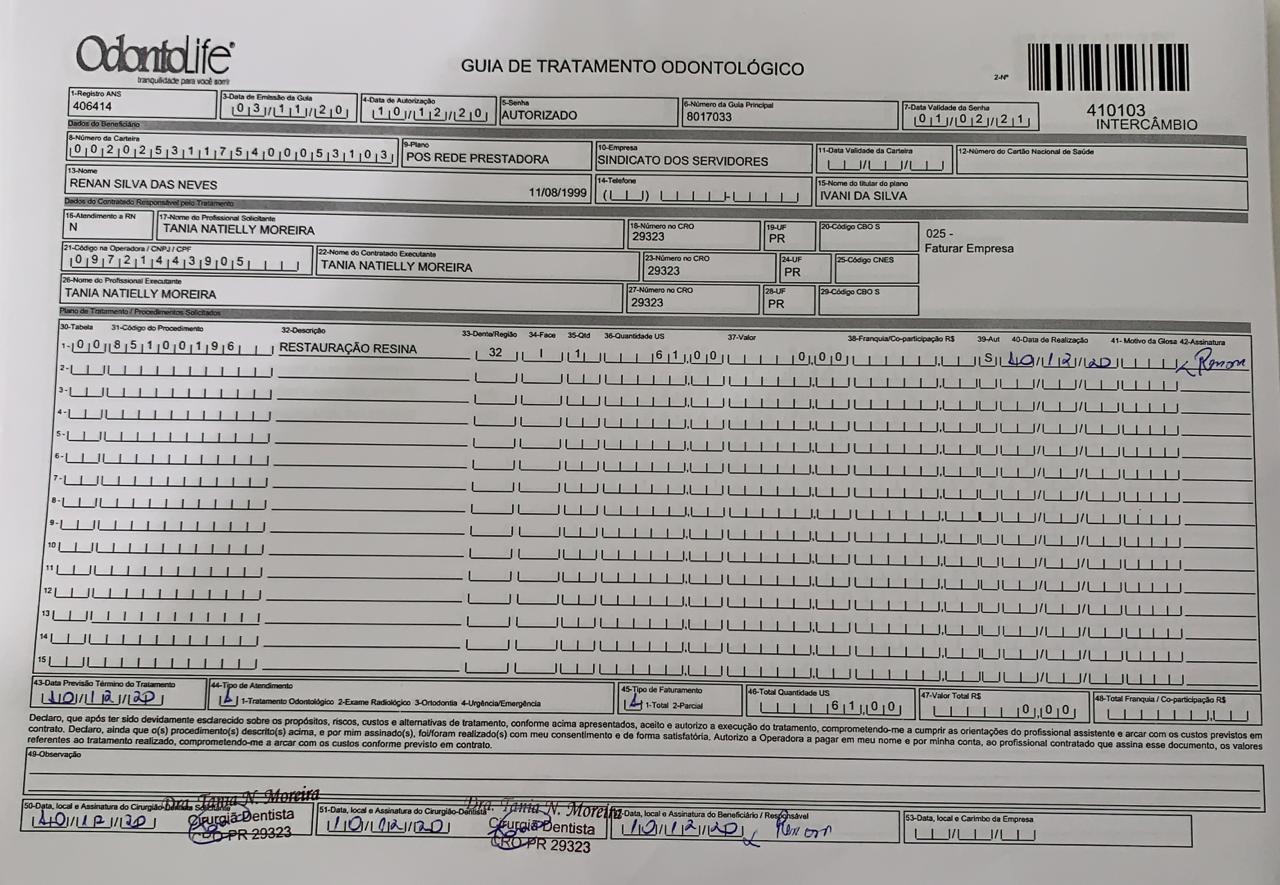 OdontoLife®
tranquilidade para você sorrir
GUIA DE TRATAMENTO ODONTOLÓGICO
2-Nº
410103
INTERCÂMBIO
1-Registro ANS
406414
3-Data de Emissão da Guia
03/11/20
4-Data de Autorização
10/12/20
5-Senha
AUTORIZADO
6-Número da Guia Principal
8017033
7-Data Validade da Senha
01/02/21
Dados do Beneficiário
8-Número da Carteira
00202531175400053103
9-Plano
POS REDE PRESTADORA
10-Empresa
SINDICATO DOS SERVIDORES
11-Data Validade da Carteira
12-Número do Cartão Nacional de Saúde
13-Nome
RENAN SILVA DAS NEVES 11/08/1999
14-Telefone
15-Nome do titular do plano
IVANI DA SILVA
Dados do Contratado Responsável pelo Tratamento
16-Atendimento a RN
N
17-Nome do Profissional Solicitante
TANIA NATIELLY MOREIRA
18-Número no CRO
29323
19-UF
PR
20-Código CBO S
025 -
Faturar Empresa
21-Código na Operadora / CNPJ / CPF
09721443905
22-Nome do Contratado Executante
TANIA NATIELLY MOREIRA
23-Número no CRO
29323
24-UF
PR
25-Código CNES
26-Nome do Profissional Executante
TANIA NATIELLY MOREIRA
27-Número no CRO
29323
28-UF
PR
29-Código CBO S
Plano de Tratamento / Procedimentos Solicitados
30-Tabela 31-Código do Procedimento 32-Descrição 33-Dente/Região 34-Face 35-Qtd 36-Quantidade US 37-Valor 38-Franquia/Co-participação R$ 39-Aut 40-Data de Realização 41- Motivo da Glosa 42-Assinatura
1- 00 85100196 RESTAURAÇÃO RESINA 32 I 1 61,00 0,00 S 10/12/20 Renan
2-
3-
4-
5-
6-
7-
8-
9-
10
11
12
13
14
15
43-Data Previsão Término do Tratamento
10/12/20
44-Tipo de Atendimento
1 1-Tratamento Odontológico 2-Exame Radiológico 3-Ortodontia 4-Urgência/Emergência
45-Tipo de Faturamento
1 1-Total 2-Parcial
46-Total Quantidade US
61,00
47-Valor Total R$
0,00
48-Total Franquia / Co-participação R$
Declaro, que após ter sido devidamente esclarecido sobre os propósitos, riscos, custos e alternativas de tratamento, conforme acima apresentados, aceito e autorizo a execução do tratamento, comprometendo-me a cumprir as orientações do profissional assistente e arcar com os custos previstos em
contrato. Declaro, ainda que o(s) procedimento(s) descrito(s) acima, e por mim assinado(s), foi/foram realizado(s) com meu consentimento e de forma satisfatória. Autorizo a Operadora a pagar em meu nome e por minha conta, ao profissional contratado que assina esse documento, os valores
referentes ao tratamento realizado, comprometendo-me a arcar com os custos conforme previsto em contrato.
49-Observação
50-Data, local e Assinatura do Cirurgião-Dentista Solicitante
10/12/20
Dra. Tania N. Moreira
Cirurgiã Dentista
CRO-PR 29323
51-Data, local e Assinatura do Cirurgião-Dentista
10/12/20
Dra. Tania N. Moreira
Cirurgiã Dentista
CRO-PR 29323
52-Data, local e Assinatura do Beneficiário / Responsável
10/12/20 Renan
53-Data, local e Carimbo da Empresa